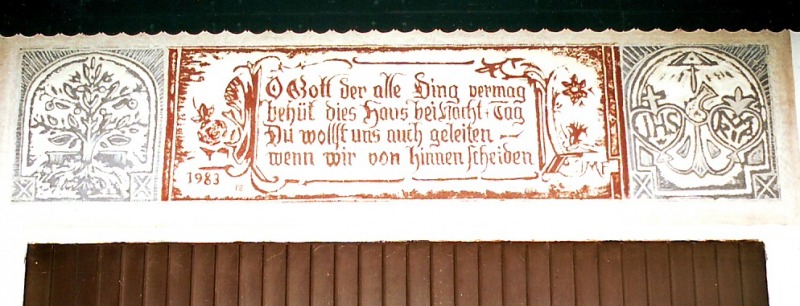 O Gott der alle Ding vermag
behüt dies Haus bei Nacht + Tag
Du wollst uns auch geleiten –
wenn wir von hinnen scheiden
1983
JMF
IHS